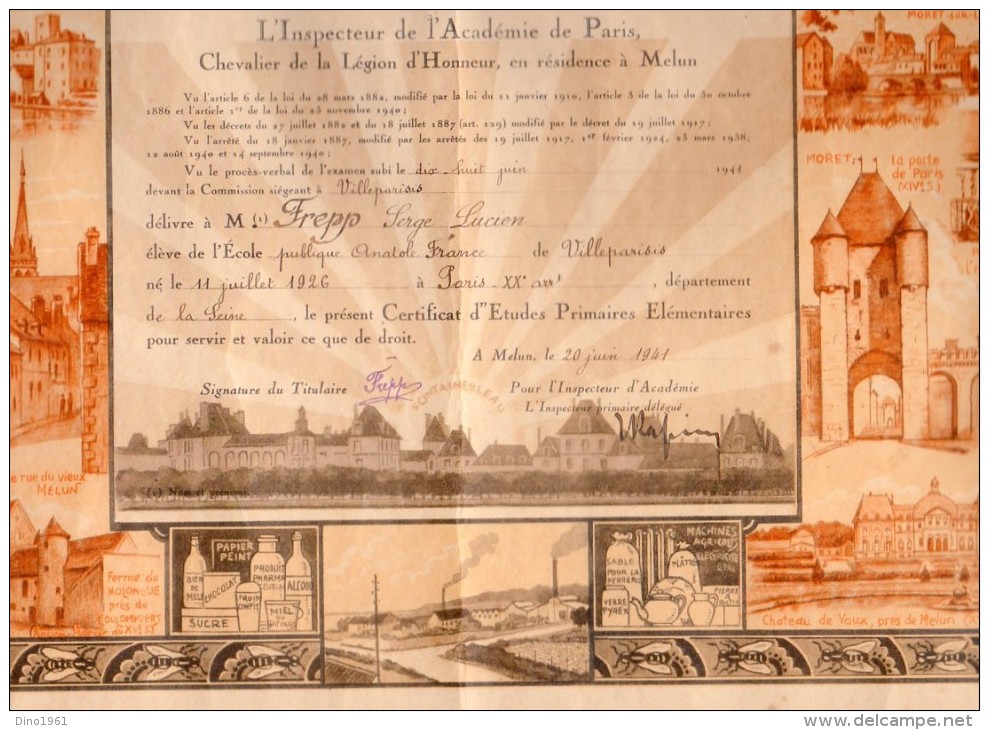 L'Inspecteur de l'Académie de Paris,
Chevalier de la Légion d'Honneur, en résidence à Melun
Vu l'article 6 de la loi du 28 mars 1882, modifié par la loi du 11 janvier 1910, l'article 3 de la loi du 30 octobre
1886 et l'article 1er de la loi du 23 novembre 1940 ;
Vu les décrets du 27 juillet 1882 et du 18 juillet 1887 (art. 129) modifié par le décret du 19 juillet 1917 ;
Vu l'arrêté du 18 janvier 1887, modifié par les arrêtés des 19 juillet 1917, 1er février 1924, 23 mars 1938,
12 août 1940 et 14 septembre 1940 ;
Vu le procès-verbal de l'examen subi le dix-huit juin 1941
devant la Commission siégeant à Villeparisis
délivre à M. (1) Frepp Serge Lucien
élève de l'École publique Anatole France de Villeparisis
né le 11 juillet 1926 à Paris - XXe arrt, département
de la Seine, le présent Certificat d'Etudes Primaires Elémentaires
pour servir et valoir ce que de droit.
A Melun, le 20 juin 1941
Signature du Titulaire Frepp
Pour l'Inspecteur d'Académie
L'Inspecteur primaire délégué
FONTAINEBLEAU
(1) Nom et prénoms.
MORET-SUR-L
MORET:
la porte
de Paris
(XIVe S.)
e rue du vieux
MELUN
Ferme de
près de
COULOMMIERS
Chateau de Vaux, près de Melun (X
PAPIER
PEINT
CHOCOLAT
PRODUIT
PHARMA
ALCOOL
FRUITS
CONFITS
MIEL
DU
GATINAIS
SUCRE
MACHINES
AGRICOLES
ELECTRICITE
ETC.
SABLE
POUR LA
VERRERIE
PLÂTRE
VERRE
PYREX
PIERRE
Dino1961
www.delcampe.net